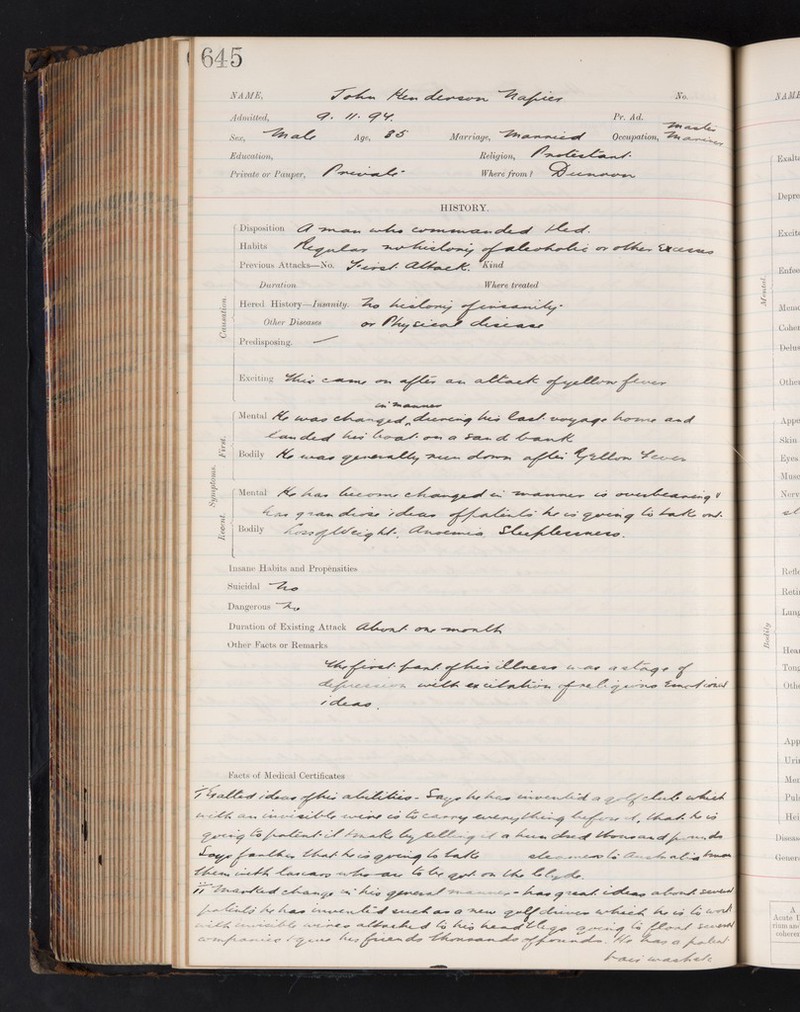 645
NAME, John Henderson Napier No.
Admitted, 9. 11. 94. Pr. Ad.
Sex, Male Age, 35 Marriage, Married Occupation, Master Mariner
Education, Religion, Protestant
Private or Pauper, Private Where from? Dunoon
HISTORY.
Disposition A man who commanded
Habits Regular no history of alcoholic or other Excesses
Previous Attacks—No. First Attack. Kind
Duration Where treated
Hered History—Insanity. No history of insanity
Other Diseases or Physical disease
Predisposing. —
Causation.
Exciting This came on after an attack of yellow fever
in manner
Mental He was changed, during his last voyage home and
landed his boat on a sand bank
Bodily He was generally run down after Yellow Fever
Symptoms. First.
Mental He has become changed in manner is overbearing &
has grandiose ideas of patents he is going to take out.
Bodily Loss of Weight, Anaemia Sleeplessness.
Recent.
Insane Habits and Propensities
Suicidal No
Dangerous No
Duration of Existing Attack About one month
Other Facts or Remarks
The first part of his illness was a stage of
depression with excitation of religious Emotional
ideas.
Facts of Medical Certificates
I Exalted ideas of his abilities - Says he has invented a golf club which
with an invisible wire is to carry everything before it, that he is
going to patent it & make by selling it a hundred thousand pounds
Says further that he is going to take steamers to Australia & man
them with Lascars who are to be got on the Clyde.
II Marked change in his general manner - has great ideas about several
patents he has invented such as a new golf driver which he is to work
with invisible wires attached to his head & legs going to float several
companies & give his friends thousands of pounds. He has a patent
NAME
Exalt
Depre
Excit
Enfee
Mental.
Memo
Coher
Delus
Other
Appe
Skin
Eyes
Musc
Nerv
Refle
Reti
Lung
Bodily
Hear
Tong
Othe
App
Urin
Men
Puls
Hei
Diseas
Gener
A
Acute
rium an
coheren